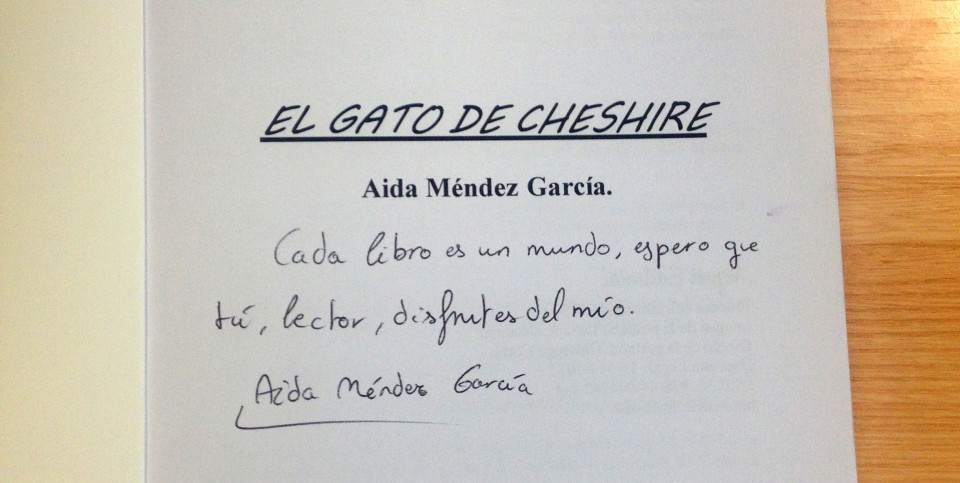 EL GATO DE CHESHIRE
Aida Méndez García.
Cada libro es un mundo, espero que
tú, lector, disfrutes del mío.
Aida Méndez García